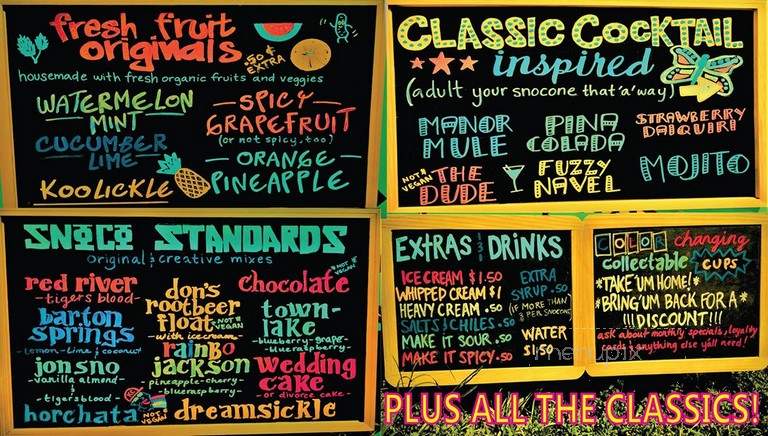 fresh fruit
originals
.50 ¢
EXTRA
housemade with fresh organic fruits and veggies
WATERMELON
MINT
CUCUMBER
LIME
KOOLICKLE
SPICY
GRAPEFRUIT
(or not spicy, too)
ORANGE
PINEAPPLE
CLASSIC COCKTAIL
inspired
(adult your snocone that 'a' way)
MANOR
MULE
PINA
COLADA
STRAWBERRY
DAIQUIRI
NOT
VEGAN
THE
DUDE
FUZZY
NAVEL
MOJITO
SNOCO STANDARDS
Original & creative mixes
red river
-tigers blood-
barton
springs
-lemon-lime & coconut-
jonsno
-vanilla almond-
&
-tigers blood-
horchata
NOT
VEGAN
don's
rootbeer
float
NOT
VEGAN
-with icecream-
rainbo
jackson
pineapple-cherry-
-blueraspberry-
dreamsickle
NOT
VEGAN
chocolate
town-
lake
-blueberry-grape-
-blueraspberry-
wedding
cake
-or divorce cake-
EXTRAS & DRINKS
ICE CREAM $1.50
WHIPPED CREAM $1
HEAVY CREAM .50
SALTS & CHILES .50
MAKE IT SOUR .50
MAKE IT SPICY .50
EXTRA
SYRUP .50
(IF MORE THAN
3 PER SNOCONE)
WATER
$1.50
COLOR changing
collectable CUPS
*TAKE 'UM HOME!*
*BRING 'UM BACK FOR A*
!!!DISCOUNT!!!
ask about monthly specials, loyalty
cards & anything else yall need!
menupix
PLUS ALL THE CLASSICS!